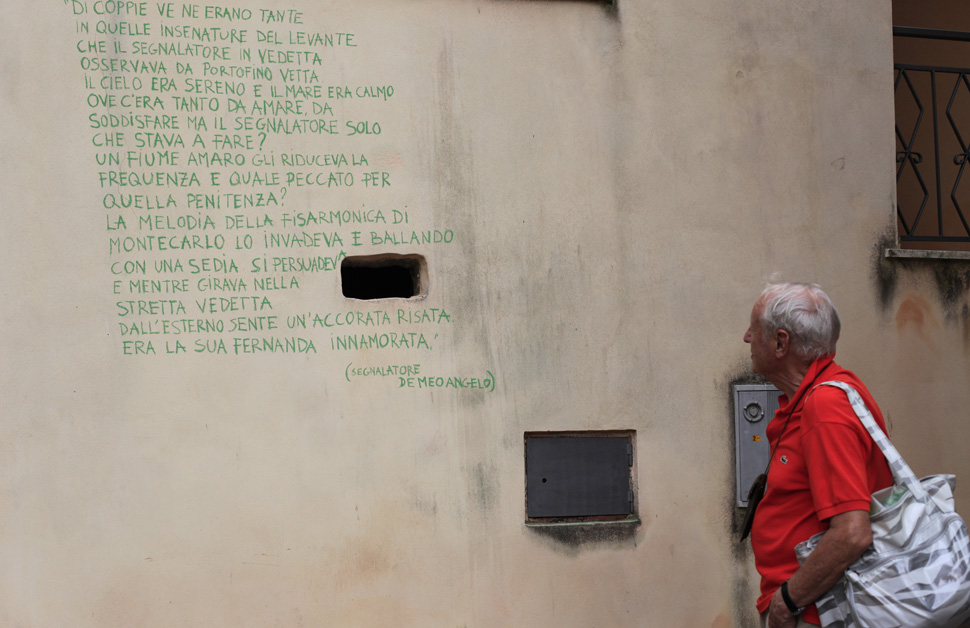 "DI COPPIE VE NE ERANO TANTE
IN QUELLE INSENATURE DEL LEVANTE
CHE IL SEGNALATORE IN VEDETTA
OSSERVAVA DA PORTOFINO VETTA
IL CIELO ERA SERENO E IL MARE ERA CALMO
OVE C'ERA TANTO DA AMARE, DA
SODDISFARE MA IL SEGNALATORE SOLO
CHE STAVA A FARE?
UN FIUME AMARO GLI RIDUCEVA LA
FREQUENZA E QUALE PECCATO PER
QUELLA PENITENZA?
LA MELODIA DELLA FISARMONICA DI
MONTECARLO LO INVADEVA E BALLANDO
CON UNA SEDIA SI PERSUADEVA
E MENTRE GIRAVA NELLA
STRETTA VEDETTA
DALL'ESTERNO SENTE UN'ACCORATA RISATA.
ERA LA SUA FERNANDA INNAMORATA."
(SEGNALATORE
DE MEO ANGELO)